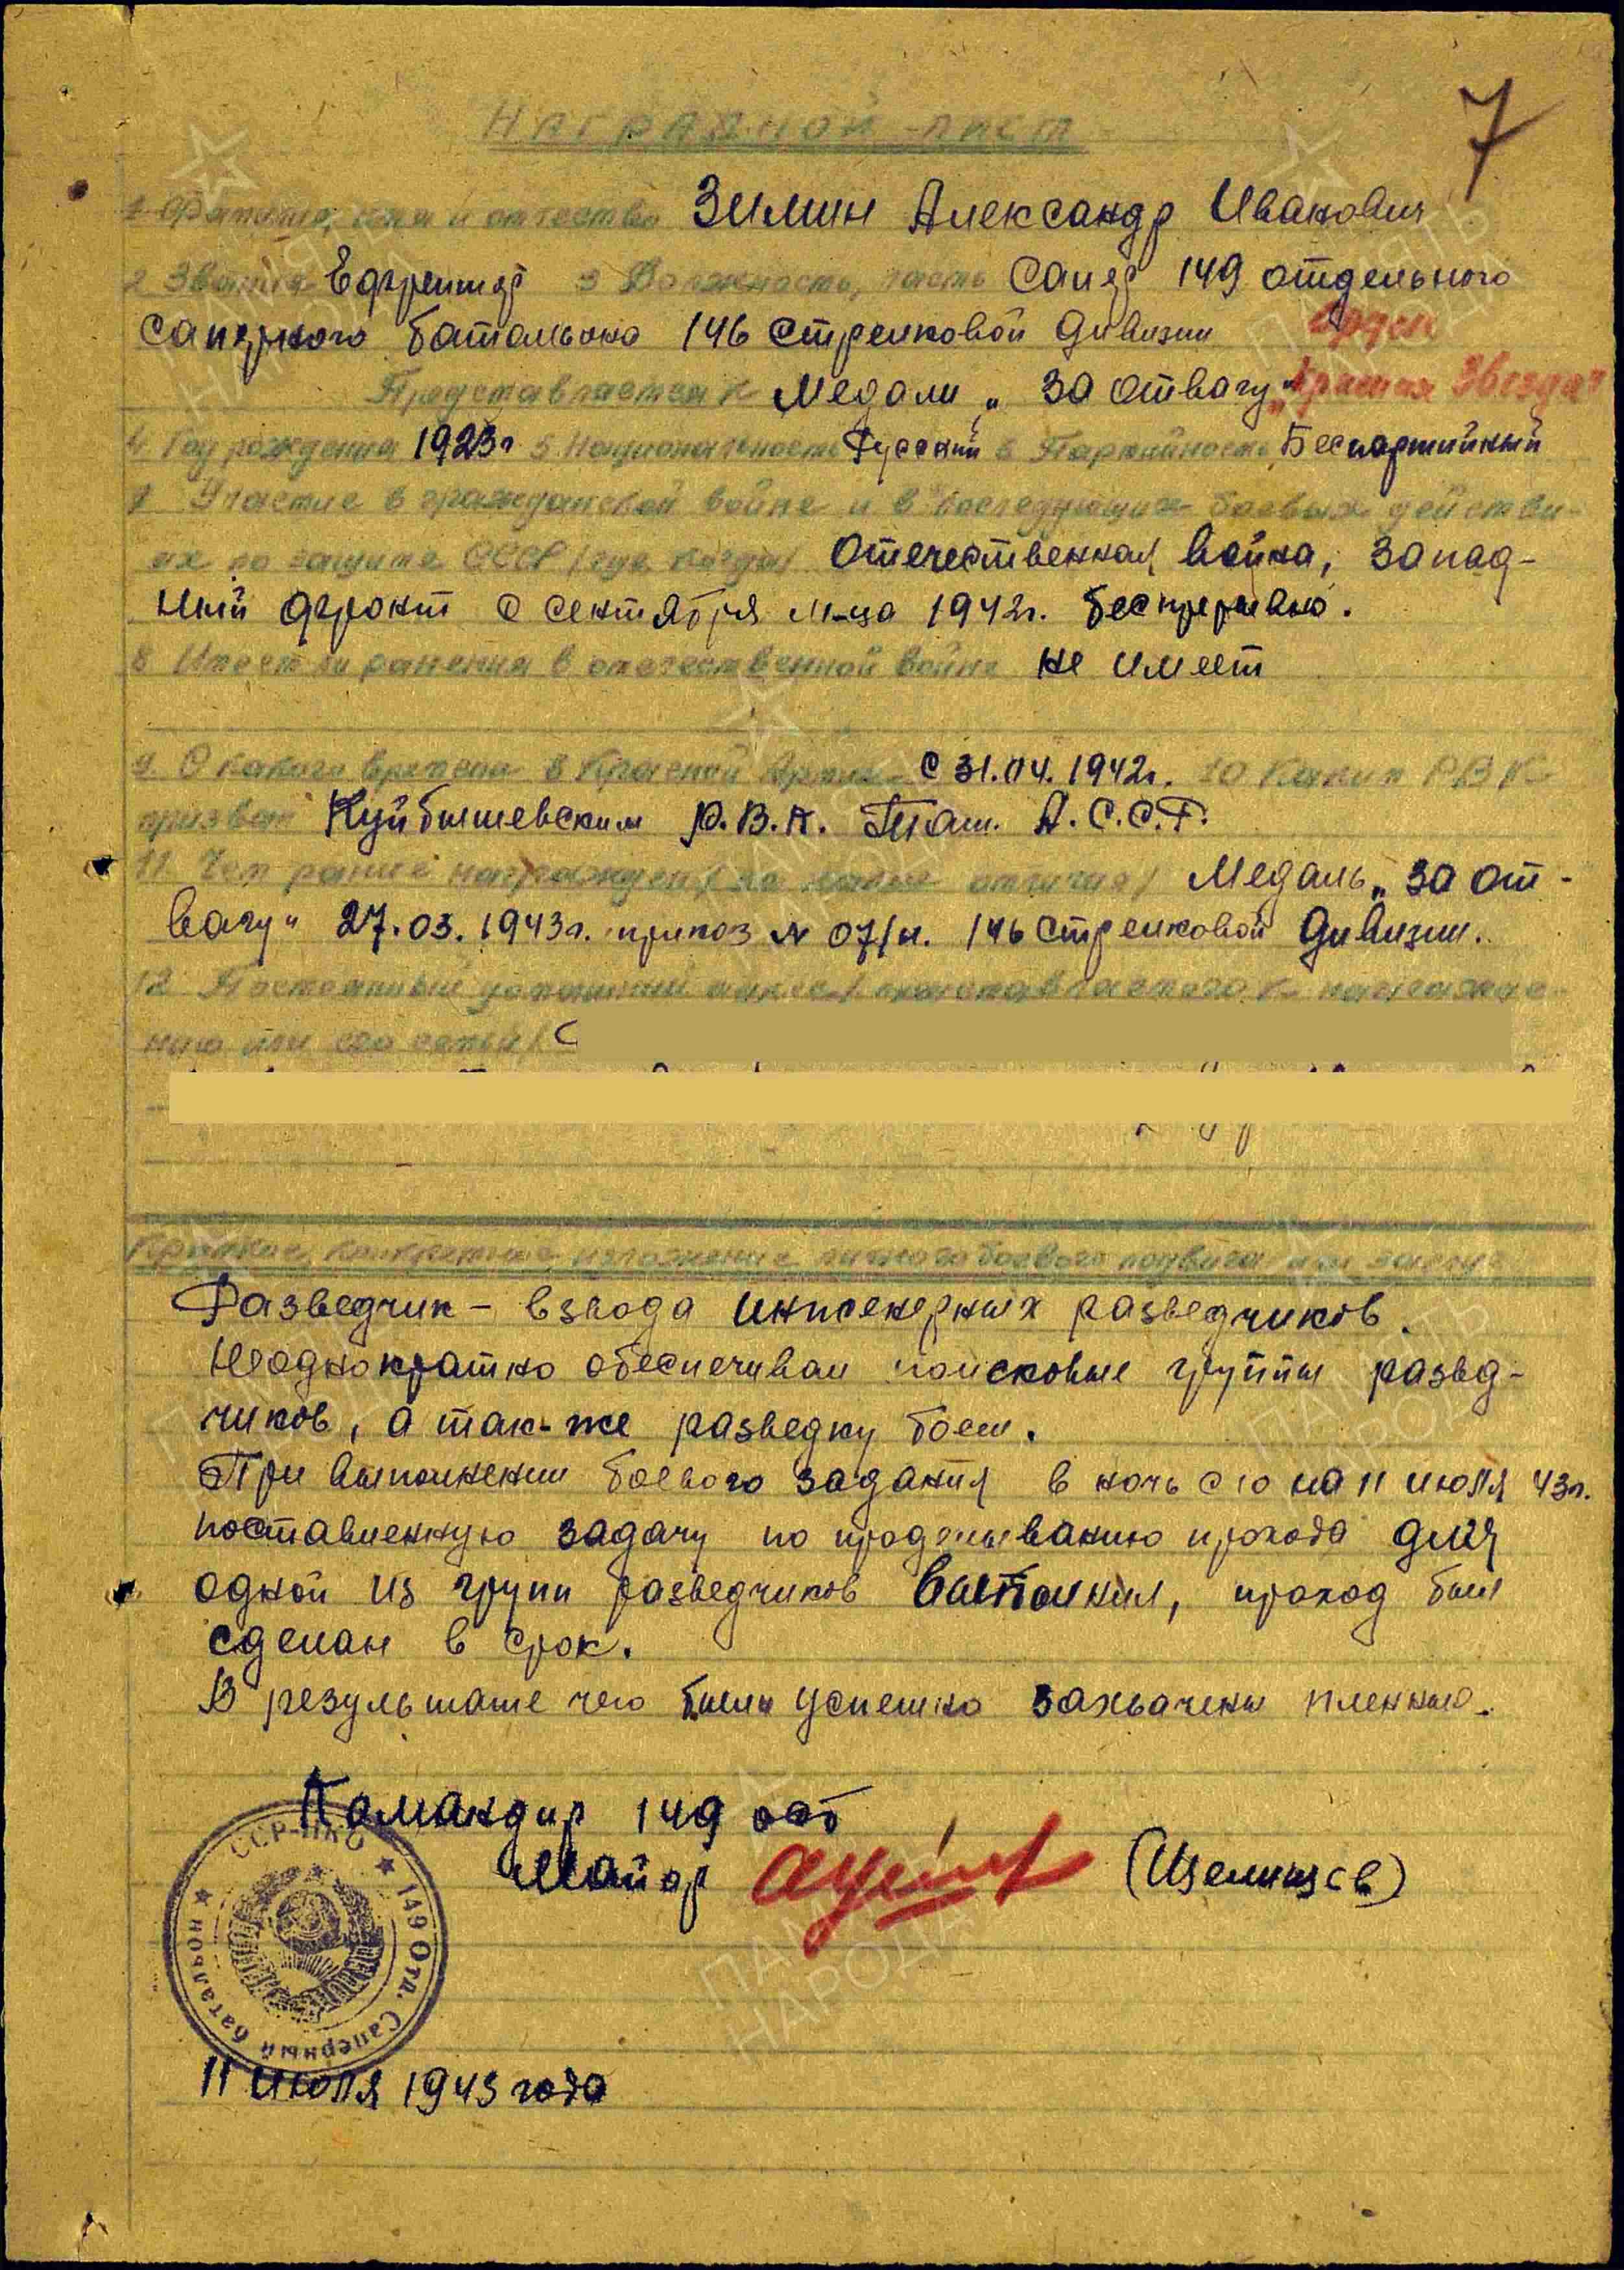 7
Наградной лист
1 Фамилия, имя и отчество Зимин Александр Иванович
2 Звание Ефрейтор 3 Должность, часть Сапер 149 отдельного
саперного батальона 146 стрелковой дивизии Орден
Представляется к Медали „За отвагу" „Красная Звезда"
4 Год рождения 1923г 5 Национальность Русский 6 Партийность Беспартийный
7 Участие в гражданской войне и в последующих боевых действи-
ях по защите СССР (где когда) Отечественная война, Запад-
ный фронт с сентября м-ца 1942г. беспрерывно.
8 Имеет ли ранения в отечественной войне не имеет
9. С какого времени в Красной Армии с 31.04.1942г. 10 Каким РВК
призван Куйбышевским Р.В.К. Таш. А.С.С.Р.
11. Чем ранее награжден (за какие отличия) Медаль „За от-
вагу" 27.03.1943г. приказ № 07/н. 146 стрелковой дивизии.
12 Постоянный домашний адрес (представляемого к награжде-
нию или его семьи) С
Краткое, конкретное изложение личного боевого подвига или заслуг
Разведчик – взвода инженерных разведчиков.
Неоднократно обеспечивал поисковые группы развед-
чиков, а так-же разведку боем.
При выполнении боевого задания в ночь с 10 на 11 июля 43г.
поставленную задачу по проделыванию прохода для
одной из групп разведчиков выполнил, проход был
сделан в срок.
В результате чего были успешно захвачены пленные.
Командир 149 осб
Майор (Целищев)
ССР-НКО ★ 149 Отд. Саперный батальон ★
11 июля 1943 года
ПАМЯТЬ НАРОДА